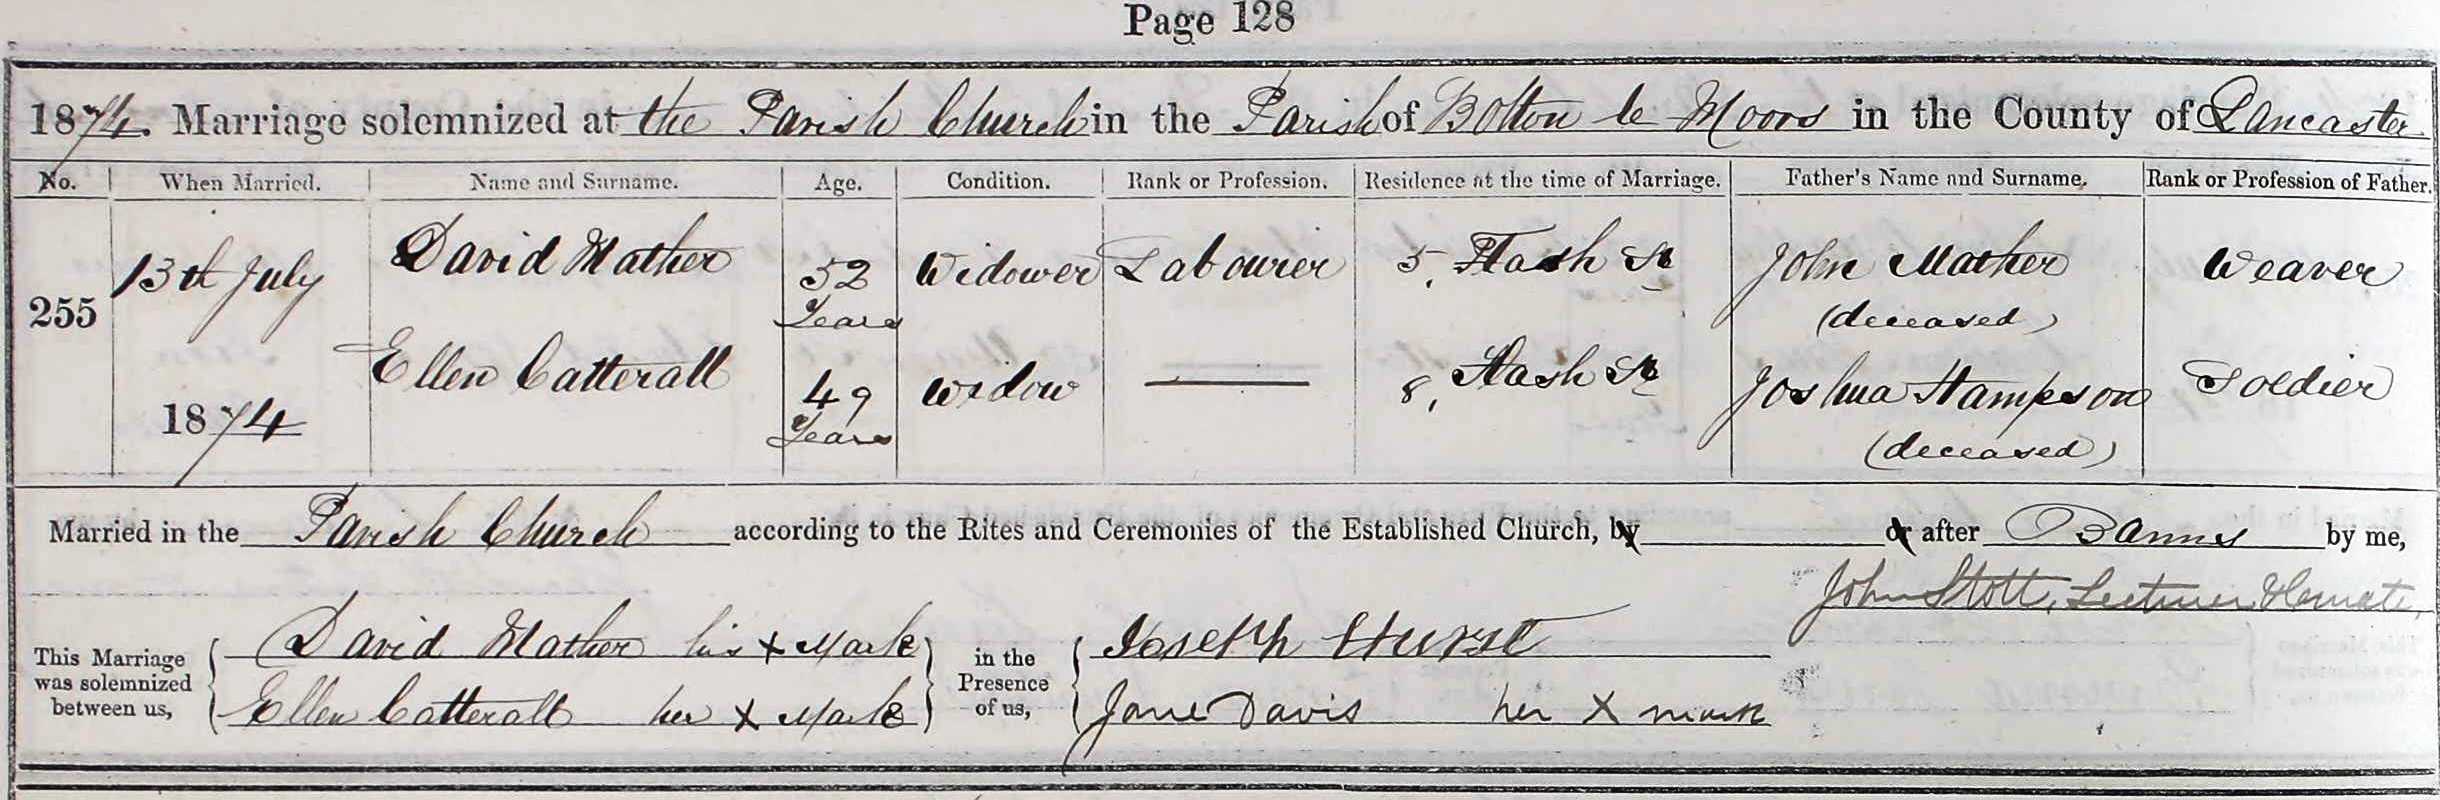 Page 128
1874. Marriage solemnized at the Parish Church in the Parish of Bolton le Moors in the County of Lancaster
No. When Married. Name and Surname. Age. Condition. Rank or Profession. Residence at the time of Marriage. Father's Name and Surname. Rank or Profession of Father.
255 13th July 1874 David Mather 52 Years Widower Labourer 5, Flash St John Mather (deceased) Weaver
Ellen Catterall 49 Years Widow 8, Flash St Joshua Hampson (deceased) Soldier
Married in the Parish Church according to the Rites and Ceremonies of the Established Church, by or after Banns by me,
John Stott, Lecturer &
This Marriage was solemnized between us, David Mather his X Mark in the Presence of us, Joseph Hurst
Ellen Catterall her X Mark Jane Davis her X mark